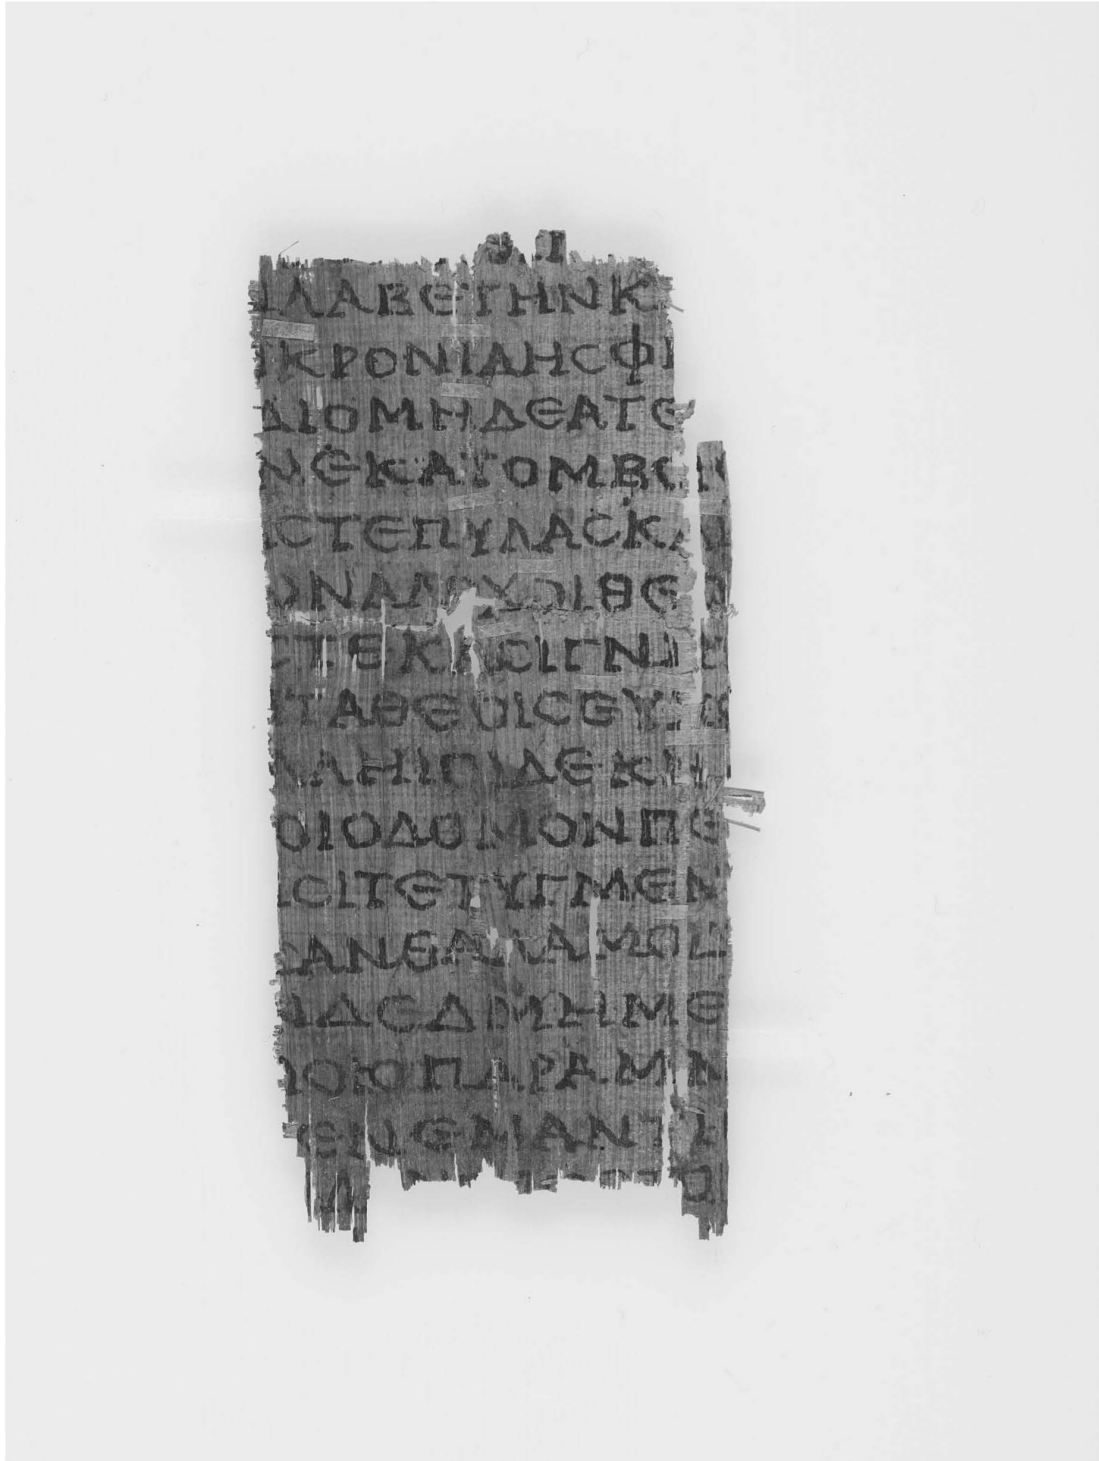 ΝΛΑΒΕΤΗΝΚ
ΙΚΡΟΝΙΔΗϹΦΡ
ΔΙΟΜΗΔΕΑΤΕ
ΝΕΚΑΤΟΜΒΟΙ
ΑϹΤΕΠΥΛΑϹΚΑΙ
ΩΝΑΛΟΧΟΙΘΕΟ
ϹΤΕΚΑϹΙΓΝΗΤ
ΙΤΑΘΕΟΙϹΕΥΧΕ
ΛΛΗΙϹΙΔΕΚΗ
ΟΙΟΔΟΜΟΝΠΕ
ΙϹΙΤΕΤΥΓΜΕΝ
ϹΑΝΘΑΛΑΜΟΙ
ΝΔΕΔΜΗΜΕ
ΜΟΙΟΠΑΡΑΜΝ
ΘΕΝΕΝΑΝΤΙ